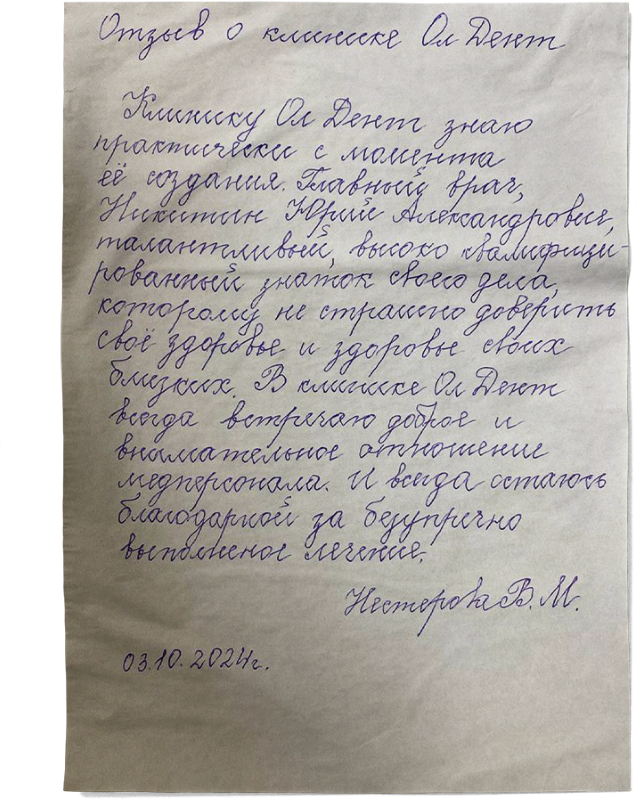 Отзыв о клинике Ол Дент
Клинику Ол Дент знаю
практически с момента
её создания. Главный врач,
Никитин Юрий Александрович,
талантливый, высоко квалифици-
рованный знаток своего дела,
которому не страшно доверить
своё здоровье и здоровье своих
близких. В клинике Ол Дент
всегда встречаю доброе и
внимательное отношение
медперсонала. И всегда остаюсь
благодарной за безупречно
выполненое лечение.
Нестерова В.М.
03.10.2024г.